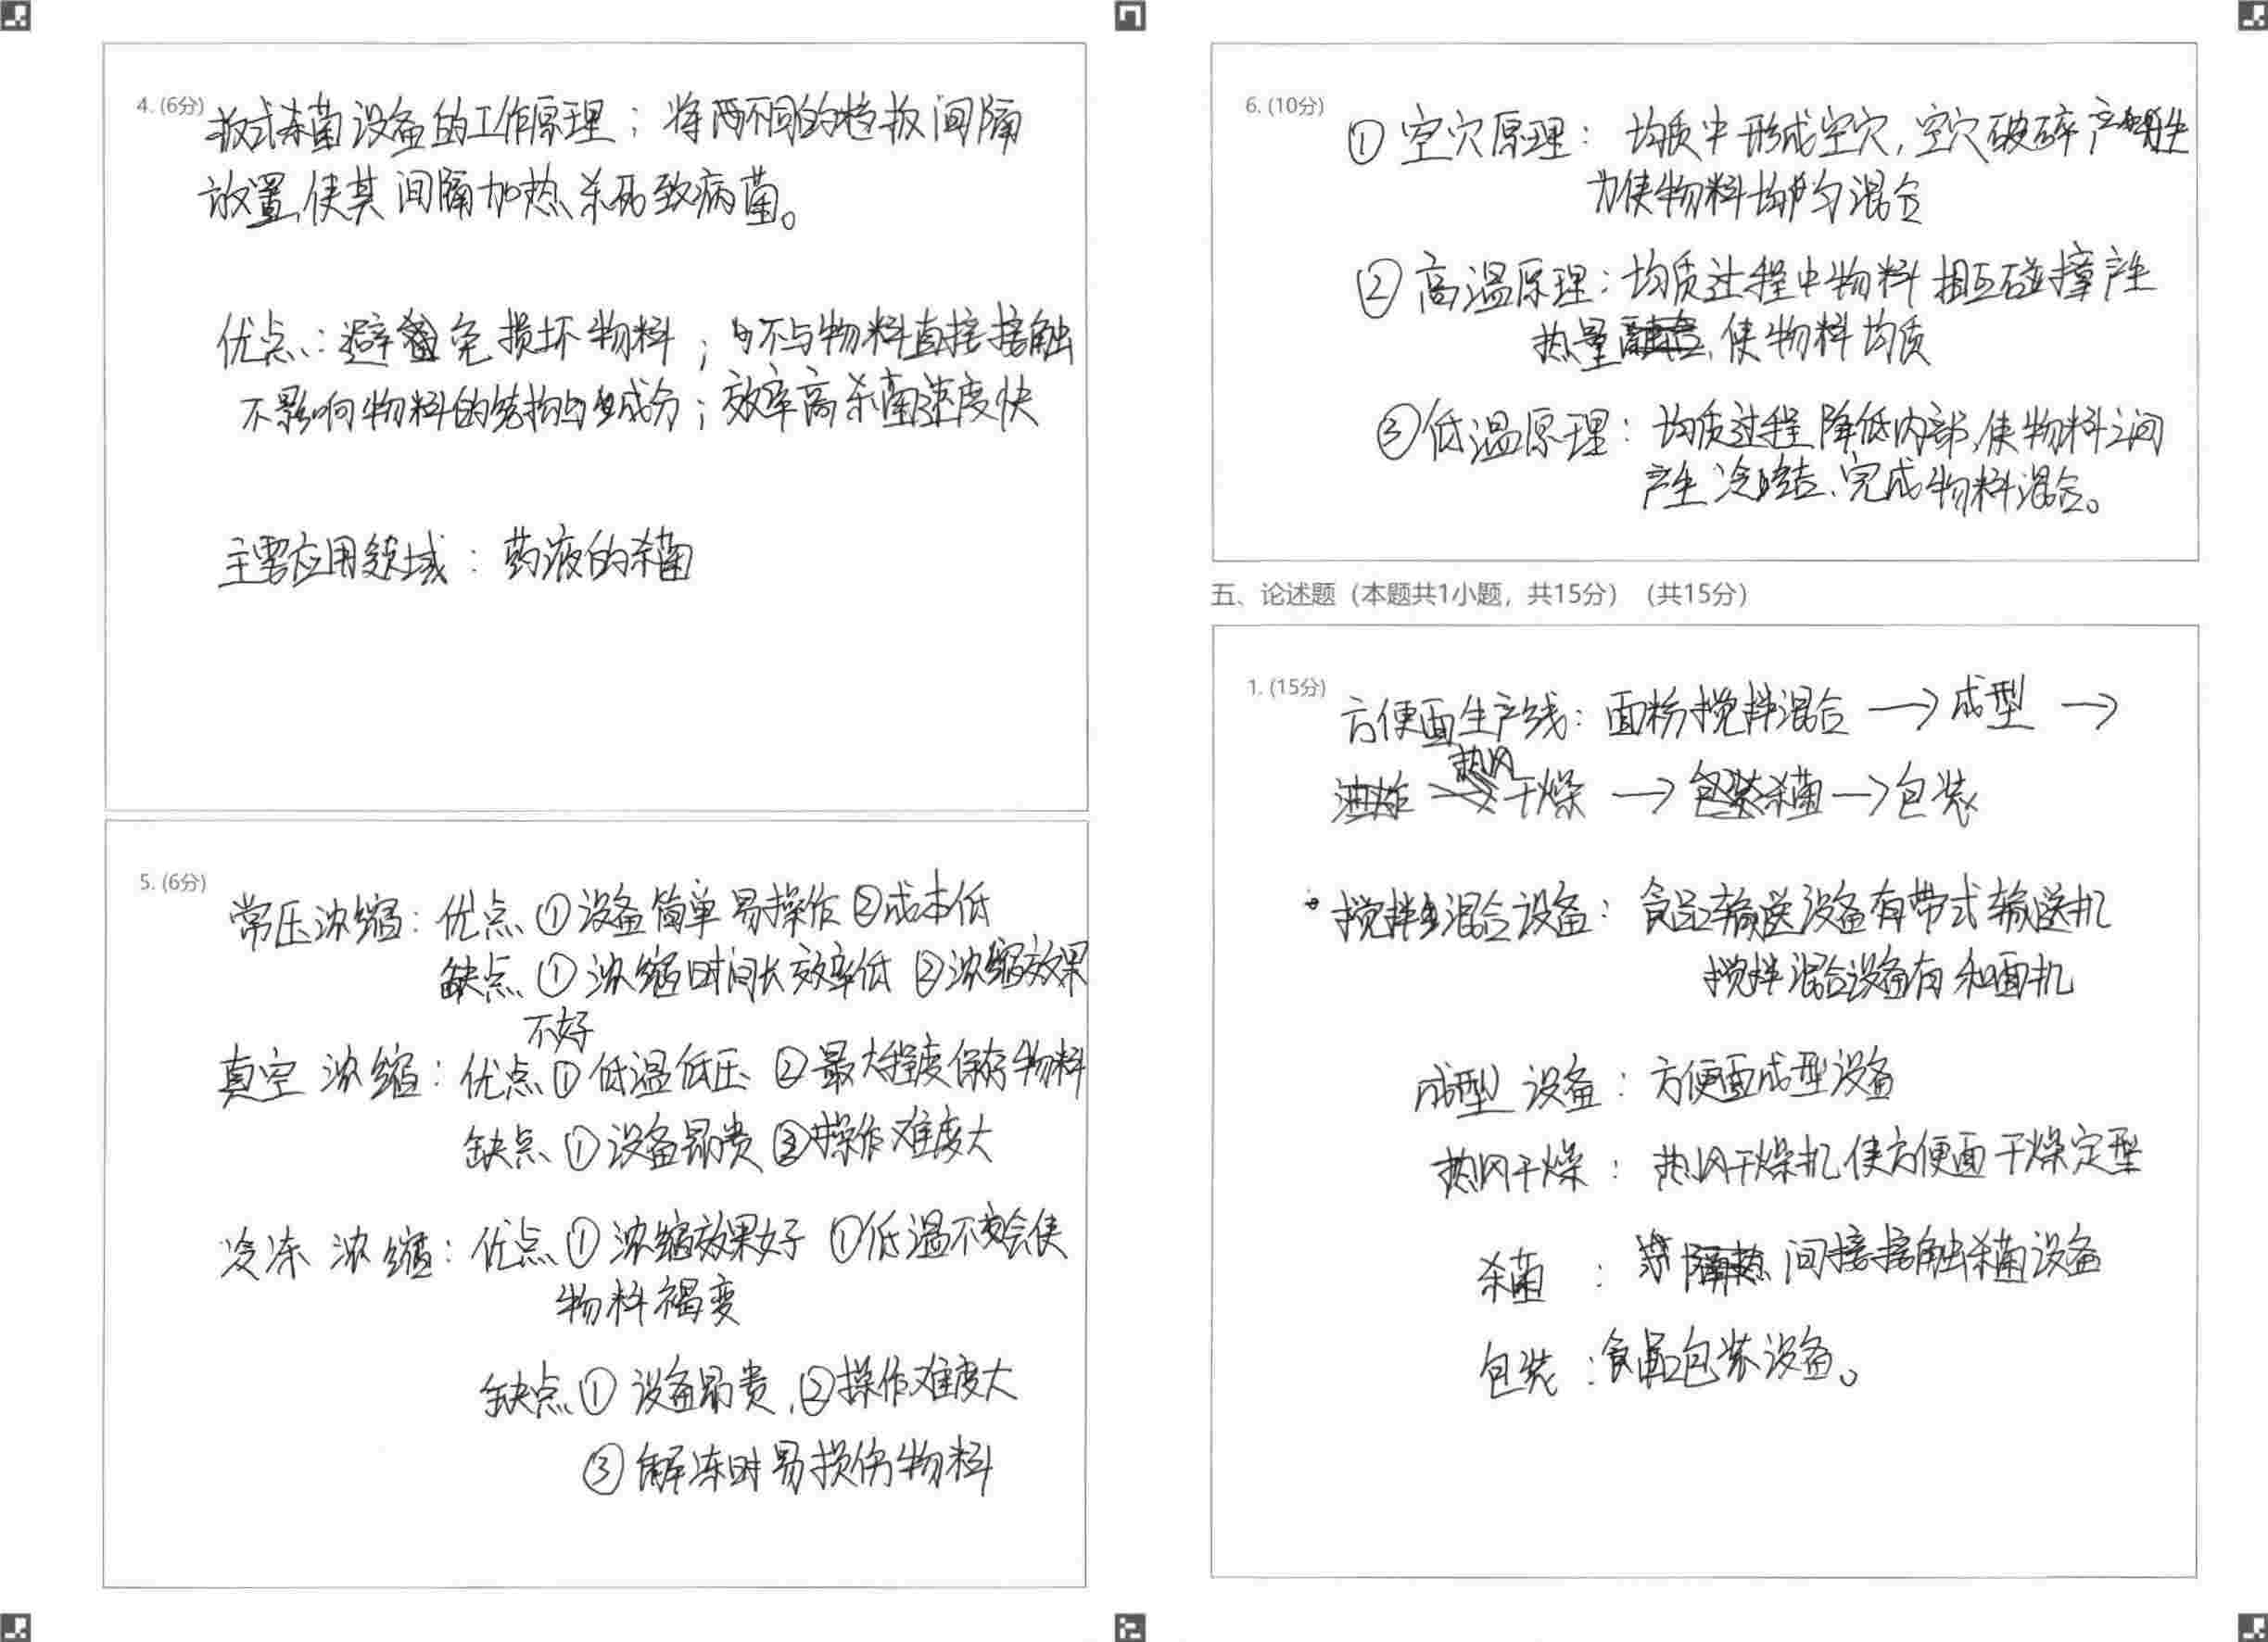 4. (6分) 板式杀菌设备的工作原理；将两不同的挡板间隔
放置,使其间隔加热,杀死致病菌。
优点：避免损坏物料；不与物料直接接触
不影响物料的结构与成分；效率高杀菌速度快
主要应用领域：药液的杀菌
5. (6分) 常压浓缩：优点 ①设备简单易操作 ②成本低
缺点 ①浓缩时间长效率低 ②浓缩效果
不好
真空浓缩：优点 ①低温低压 ②最大程度保存物料
缺点 ①设备昂贵 ②操作难度大
冷冻浓缩：优点 ①浓缩效果好 ①低温不会使
物料褐变
缺点 ①设备昂贵,②操作难度大
③解冻时易损伤物料
6. (10分) ①空穴原理：均质中形成空穴,空穴破碎产生
力使物料均匀混合
②高温原理：均质过程中物料相互碰撞产生
热量,使物料均质
③低温原理：均质过程降低内部,使物料之间
产生冷凝结,完成物料混合。
五、论述题（本题共1小题，共15分）（共15分）
1. (15分) 方便面生产线：面粉搅拌混合 → 成型 →
油炸 → 热风干燥 → 杀菌 → 包装
搅拌混合设备：食品输送设备有带式输送机
搅拌混合设备有和面机
成型设备：方便面成型设备
热风干燥：热风干燥机使方便面干燥定型
杀菌：间接接触杀菌设备
包装：食品包装设备。